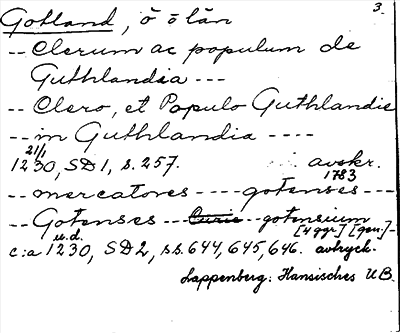 Gotland, ö o län 3.
-- Clerum ac populum de
Guthlandia ---
-- Clero, et Populo Guthlandie
-- in Guthlandia ----
21/1
1230, SD1, s. 257. avskr.
1783
-- mercatores ---- gotenses ---
-- Gotenses -- Curie -- gotensium
u.d. [4 ggr.] [gen.] -
c:a 1230, SD2, ss. 644, 645, 646. avtryck.
Lappenberg: Hansisches UB.